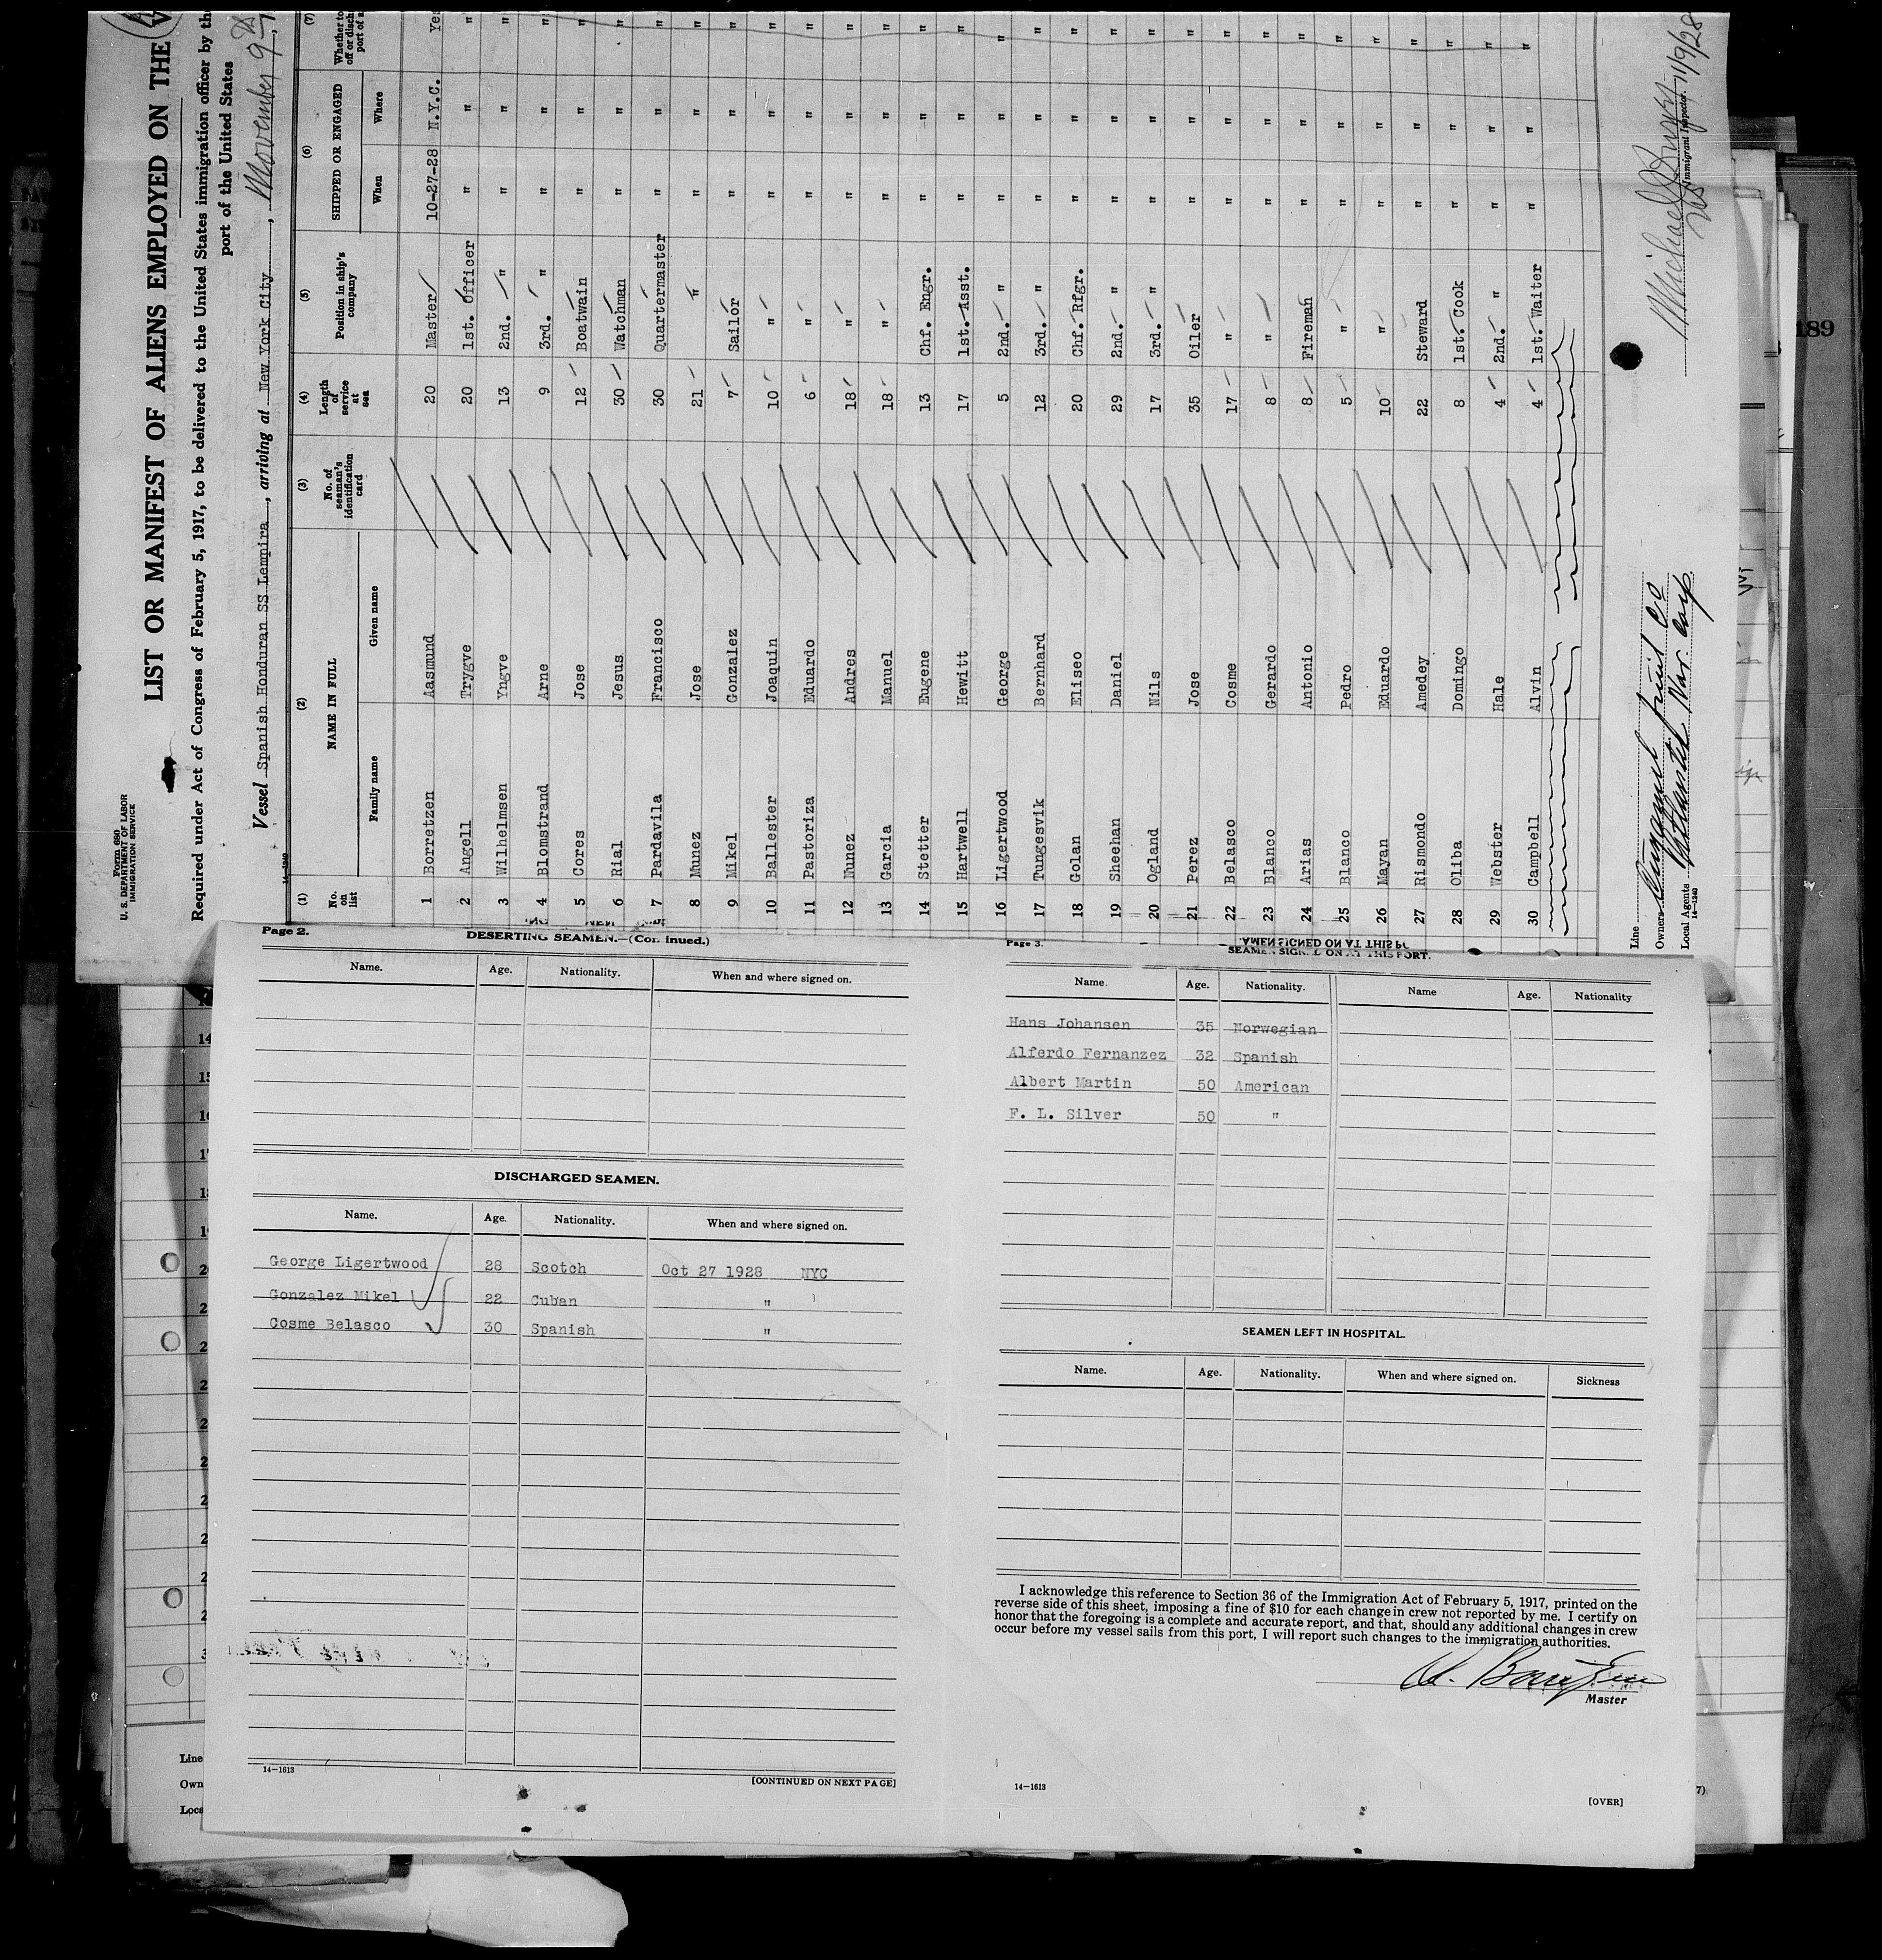 Form 680
U. S. DEPARTMENT OF LABOR
IMMIGRATION SERVICE
LIST OR MANIFEST OF ALIENS EMPLOYED ON THE
Required under Act of Congress of February 5, 1917, to be delivered to the United States immigration officer by th
port of the United States
Vessel Spanish Honduran SS Lempira, arriving at New York City, November 9th,
(1) (2) (3) (4) (5) (6) (7)
No. on list NAME IN FULL No. of seaman's identification card Length of service at sea Position in ship's company SHIPPED OR ENGAGED Whether to
off or disch
port of a
Family name Given name When Where
1 Borretzen Aasmund 20 Master 10-27-28 N.Y.C. Yes
2 Angell Trygve 20 1st. Officer " " "
3 Wilhelmsen Yngve 13 2nd. " " " "
4 Blomstrand Arne 9 3rd. " " " "
5 Cores Jose 12 Boatwain " " "
6 Rial Jesus 30 Watchman " " "
7 Pardavila Francisco 30 Quartermaster " " "
8 Munez Jose 21 " " " "
9 Mikel Gonzalez 7 Sailor " " "
10 Ballester Joaquin 10 " " " "
11 Pastoriza Eduardo 6 " " " "
12 Nunez Andres 18 " " " "
13 Garcia Manuel 18 " " " "
14 Stetter Eugene 13 Chf. Engr. " " "
15 Hartwell Hewitt 17 1st. Asst. " " "
16 Ligertwood George 5 2nd. " " " "
17 Tungesvik Bernhard 12 3rd. " " " "
18 Golan Eliseo 20 Chf. Rfgr. " " "
19 Sheehan Daniel 29 2nd. " " " "
20 Ogland Nils 17 3rd. " " " "
21 Perez Jose 35 Oiler " " "
22 Belasco Cosme 17 " " " "
23 Blanco Gerardo 8 " " " "
24 Arias Antonio 8 Fireman " " "
25 Blanco Pedro 5 " " " "
26 Mayan Eduardo 10 " " " "
27 Rismondo Amedey 22 Steward " " "
28 Oliba Domingo 8 1st. Cook " " "
29 Webster Hale 4 2nd. " " " "
30 Campbell Alvin 4 1st. Waiter " " "
Line
Owners Fruit Co
Local Agents Atlantic Nav. Corp.
14-1240
Michael 11/9/28
Immigrant Inspector.
189
Page 2.
DESERTING SEAMEN.—(Con inued.)
Name. Age. Nationality. When and where signed on.
DISCHARGED SEAMEN.
Name. Age. Nationality. When and where signed on.
George Ligertwood 28 Scotch Oct 27 1928 NYC
Gonzalez Mikel 22 Cuban "
Cosme Belasco 30 Spanish "
14—1613
[CONTINUED ON NEXT PAGE]
Page 3.
SEAMEN SIGNED ON AT THIS PORT.
Name. Age. Nationality. Name Age. Nationality
Hans Johansen 35 Norwegian
Alferdo Fernanzez 32 Spanish
Albert Martin 50 American
F. L. Silver 50 "
SEAMEN LEFT IN HOSPITAL.
Name. Age. Nationality. When and where signed on. Sickness
I acknowledge this reference to Section 36 of the Immigration Act of February 5, 1917, printed on the
reverse side of this sheet, imposing a fine of $10 for each change in crew not reported by me. I certify on
honor that the foregoing is a complete and accurate report, and that, should any additional changes in crew
occur before my vessel sails from this port, I will report such changes to the immigration authorities.
A. Borretzen
Master
14—1613
[OVER]
Line
Own
Loca